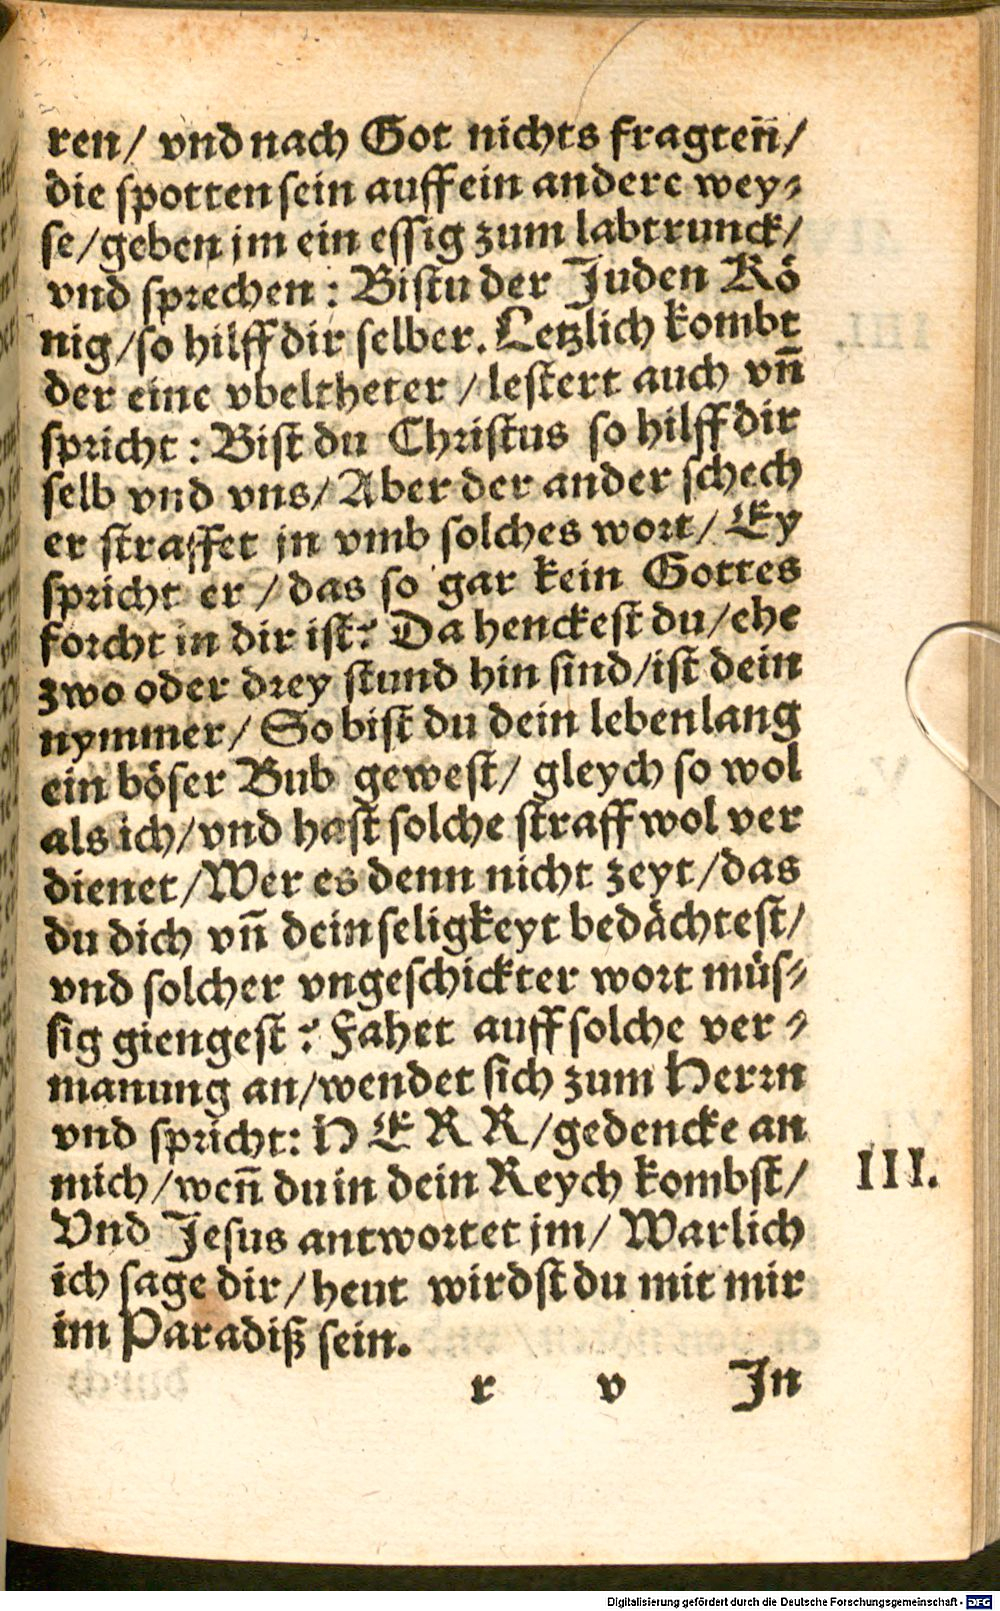 ren/ vnd nach Got nichts fragten̄/
die spotten sein auff ein andere wey⸗
se/geben jm ein essig zum labtrunck/
vnd sprechen: Bistu der Juden Kö
nig/so hilff dir selber. Letzlich kombt
der eine vbeltheter/lestert auch vn̄
spricht: Bist du Christus so hilff dir
selb vnd vns/Aber der ander schech
er straffet jn vmb solches wort/ Ey
spricht er/das so gar kein Gottes
forcht in dir ist? Da henckest du/ehe
zwo oder drey stund hin sind/ist dein
nymmer/ So bist du dein lebenlang
ein böser Bub gewest/ gleych so wol
als ich/vnd hast solche straff wol ver
dienet/Wer es denn nicht zeyt/das
du dich vn̄ dein seligkeyt bedächtest/
vnd solcher vngeschickter wort müs⸗
sig giengest? Fahet auff solche ver⸗
manung an/wendet sich zum Herrn
vnd spricht: HERR/gedencke an
mich/wen̄ du in dein Reych kombst/
III.
Vnd Jesus antwortet jm/ Warlich
ich sage dir/heut wirdst du mit mir
im Paradiß sein.
r v Jn
Digitalisierung gefördert durch die Deutsche Forschungsgemeinschaft - DFG